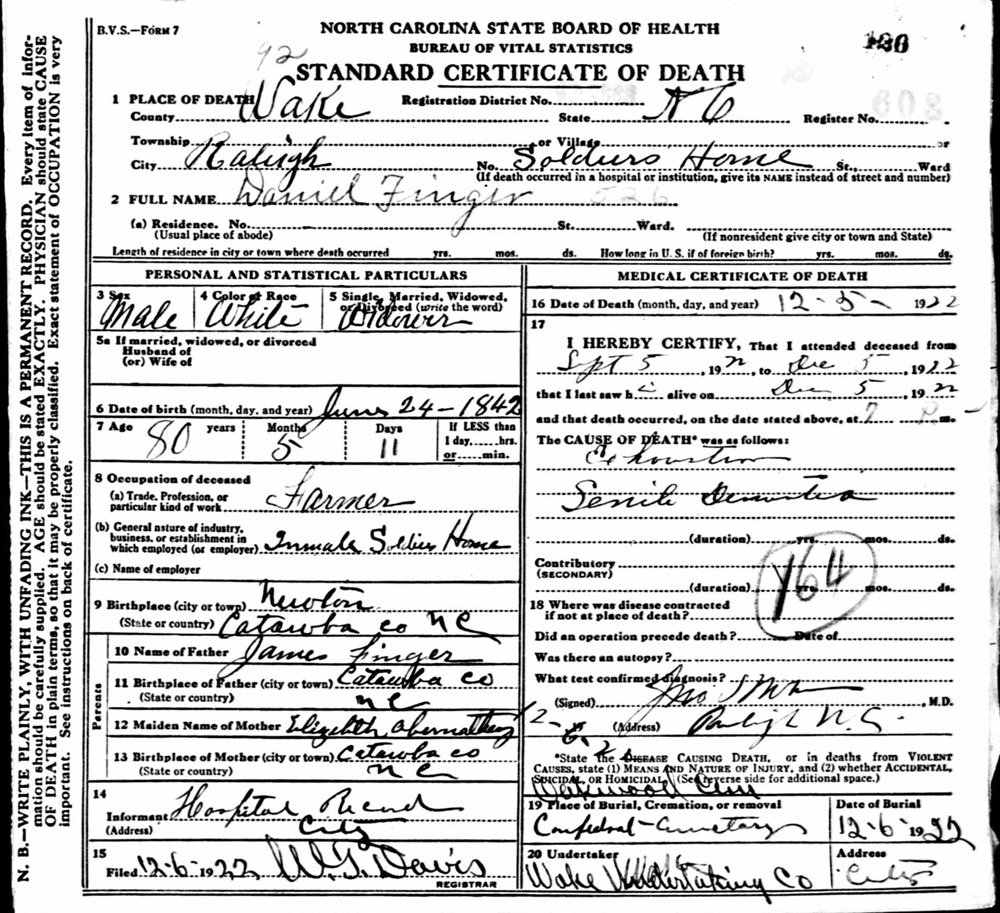 B.V.S.—FORM 7
NORTH CAROLINA STATE BOARD OF HEALTH
BUREAU OF VITAL STATISTICS
92
STANDARD CERTIFICATE OF DEATH
1 PLACE OF DEATH
County Wake Registration District No. State N C Register No. 608
Township or Village or
City Raleigh No. Soldiers Home St., Ward
(If death occurred in a hospital or institution, give its NAME instead of street and number)
2 FULL NAME Daniel Finger 526
(a) Residence. No. St. Ward.
(Usual place of abode) (If nonresident give city or town and State)
Length of residence in city or town where death occurred yrs. mos. ds. How long in U. S. if of foreign birth? yrs. mos. ds.
PERSONAL AND STATISTICAL PARTICULARS
3 Sex 4 Color or Race 5 Single, Married, Widowed, or Divorced (write the word)
Male White Widower
5a If married, widowed, or divorced
Husband of
(or) Wife of
6 Date of birth (month, day, and year) June 24-1842
7 Age 80 years Months 5 Days 11 If LESS than 1 day......hrs. or......min.
8 Occupation of deceased
(a) Trade, Profession, or particular kind of work Farmer
(b) General nature of industry, business, or establishment in which employed (or employer) Inmate Soldiers Home
(c) Name of employer
9 Birthplace (city or town) Newton
(State or country) Catawba co NC
Parents
10 Name of Father James Finger
11 Birthplace of Father (city or town) Catawba co
(State or country) NC
12 Maiden Name of Mother Elizebth Abernathey
13 Birthplace of Mother (city or town) Catawba co
(State or country) NC
14
Informant Hospital Record
(Address) City
15
Filed 12-6-1922 W.G. Davis
REGISTRAR
MEDICAL CERTIFICATE OF DEATH
16 Date of Death (month, day, and year) 12-5- 1922
17
I HEREBY CERTIFY, That I attended deceased from
Sept 5, 1922, to Dec 5, 1922
that I last saw h alive on Dec 5, 1922
and that death occurred, on the date stated above, at 7 P.m.
The CAUSE OF DEATH* was as follows:
Exhaustion
Senile Dementea
(duration) yrs. mos. ds.
Contributory
(SECONDARY)
(duration) yrs. mos. ds.
164
18 Where was disease contracted
if not at place of death?
Did an operation precede death? Date of
Was there an autopsy?
What test confirmed diagnosis?
(Signed) , M.D.
(Address) Raleigh N.C.
*State the DISEASE CAUSING DEATH, or in deaths from VIOLENT
CAUSES, state (1) MEANS AND NATURE OF INJURY, and (2) whether ACCIDENTAL,
SUICIDAL, OR HOMICIDAL. (See reverse side for additional space.)
Oakwood Cem
19 Place of Burial, Cremation, or removal Date of Burial
Confedrat-Cemetary 12-6-1922
20 Undertaker Address
Wake Undertaking Co City
N. B.—WRITE PLAINLY, WITH UNFADING INK—THIS IS A PERMANENT RECORD. Every item of infor-
mation should be carefully supplied. AGE should be stated EXACTLY. PHYSICIAN should state CAUSE
OF DEATH in plain terms, so that it may be properly classified. Exact statement of OCCUPATION is very
important. See instructions on back of certificate.